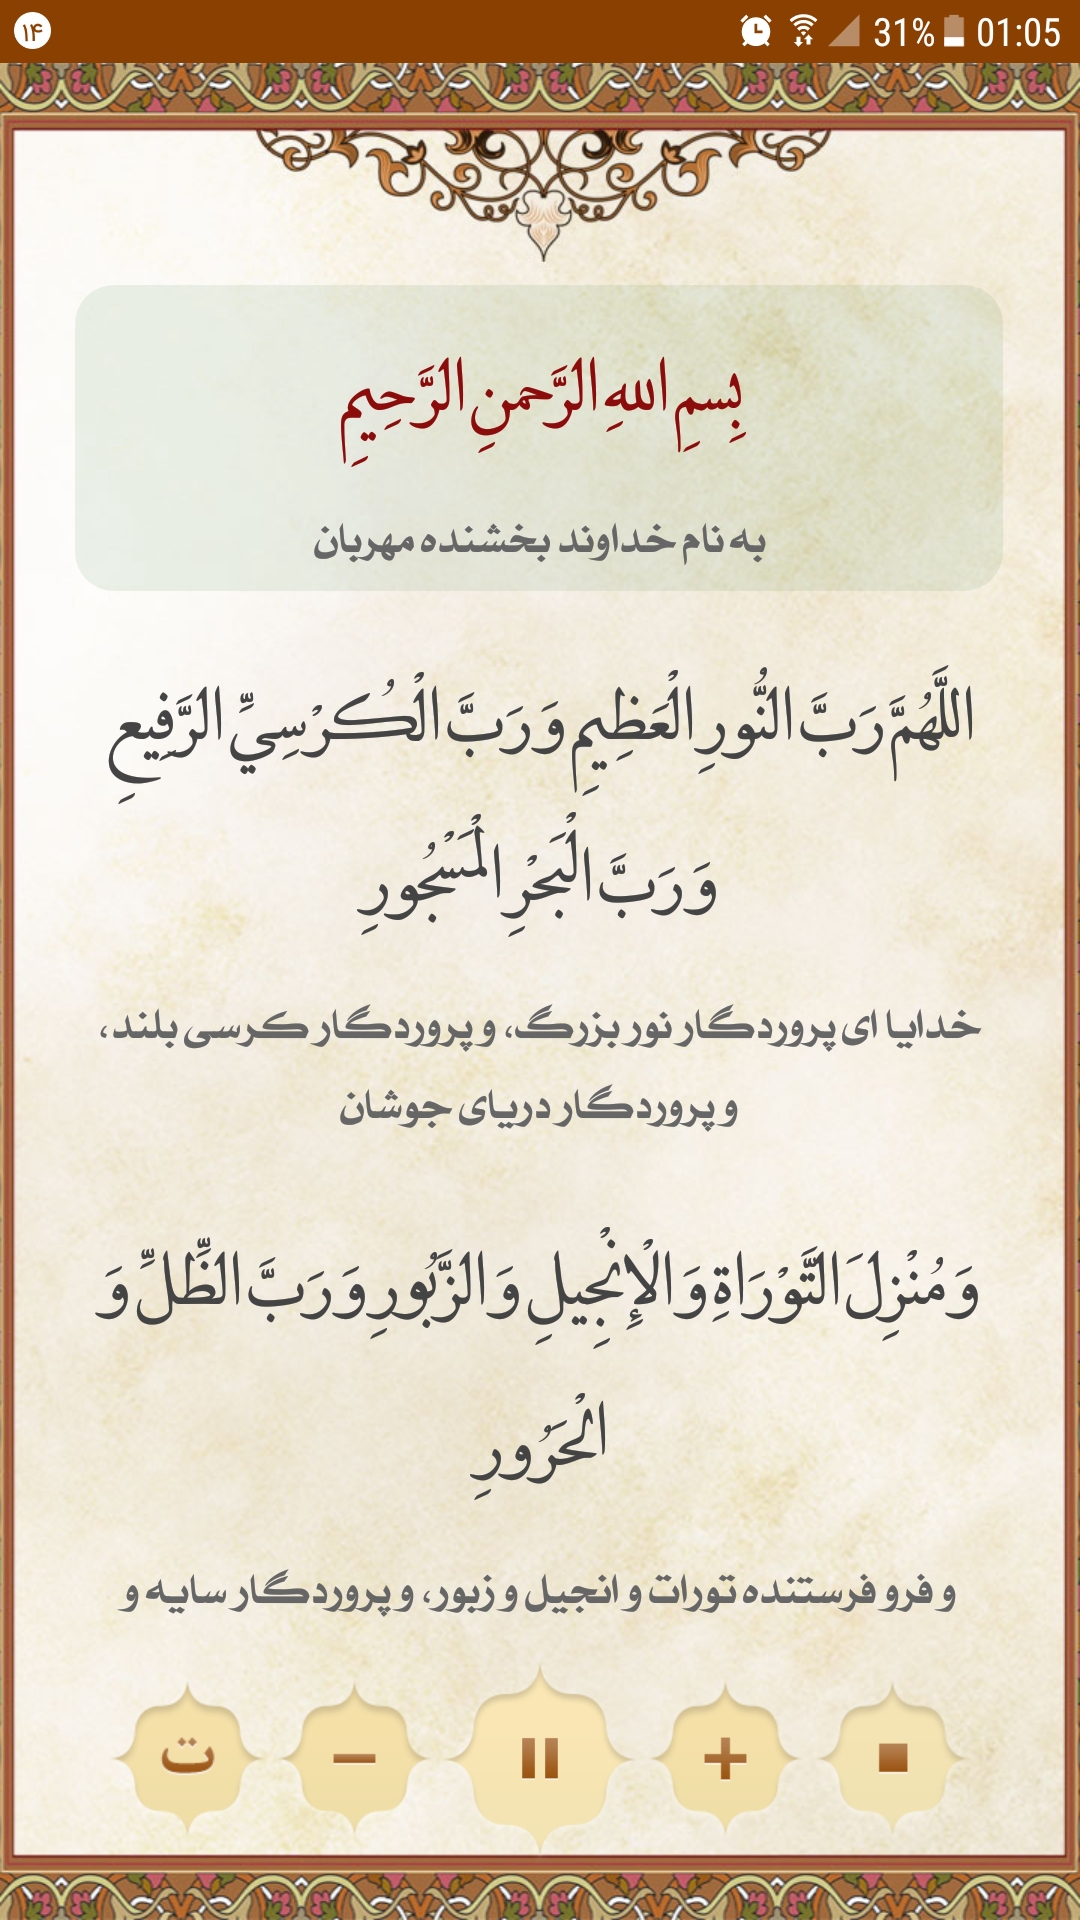 ۱۴ 31% 01:05
بِسمِ اللهِ الرَّحمنِ الرَّحِیمِ
به نام خداوند بخشنده مهربان
اللَّهُمَّ رَبَّ النُّورِ الْعَظِیمِ وَ رَبَّ الْکُرْسِيِّ الرَّفِیعِ
وَ رَبَّ الْبَحْرِ الْمَسْجُورِ
خدایا ای پروردگار نور بزرگ، و پروردگار کرسی بلند،
و پروردگار دریای جوشان
وَ مُنْزِلَ التَّوْرَاةِ وَ الْإِنْجِیلِ وَ الزَّبُورِ وَ رَبَّ الظِّلِّ وَ
الْحَرُورِ
و فرو فرستنده تورات و انجیل و زبور، و پروردگار سایه و
ت − +